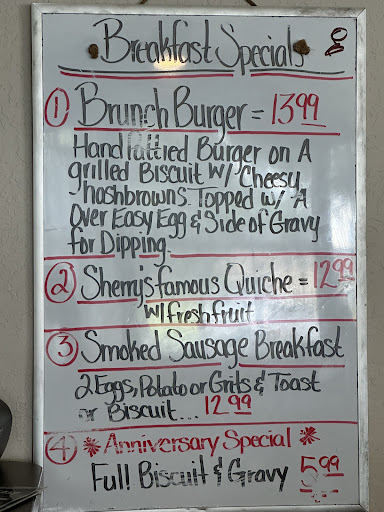 Breakfast Specials
1 Brunch Burger = 13.99
Hand Pattied Burger on A
grilled Biscuit w/ Cheesy
hashbrowns. Topped w/ A
Over Easy Egg & Side of Gravy
for Dipping.
2 Sherry's famous Quiche = 12.99
w/ fresh fruit
3 Smoked Sausage Breakfast
2 Eggs, Potato or Grits & Toast
or Biscuit... 12.99
4 * Anniversary Special *
Full Biscuit & Gravy 5.99